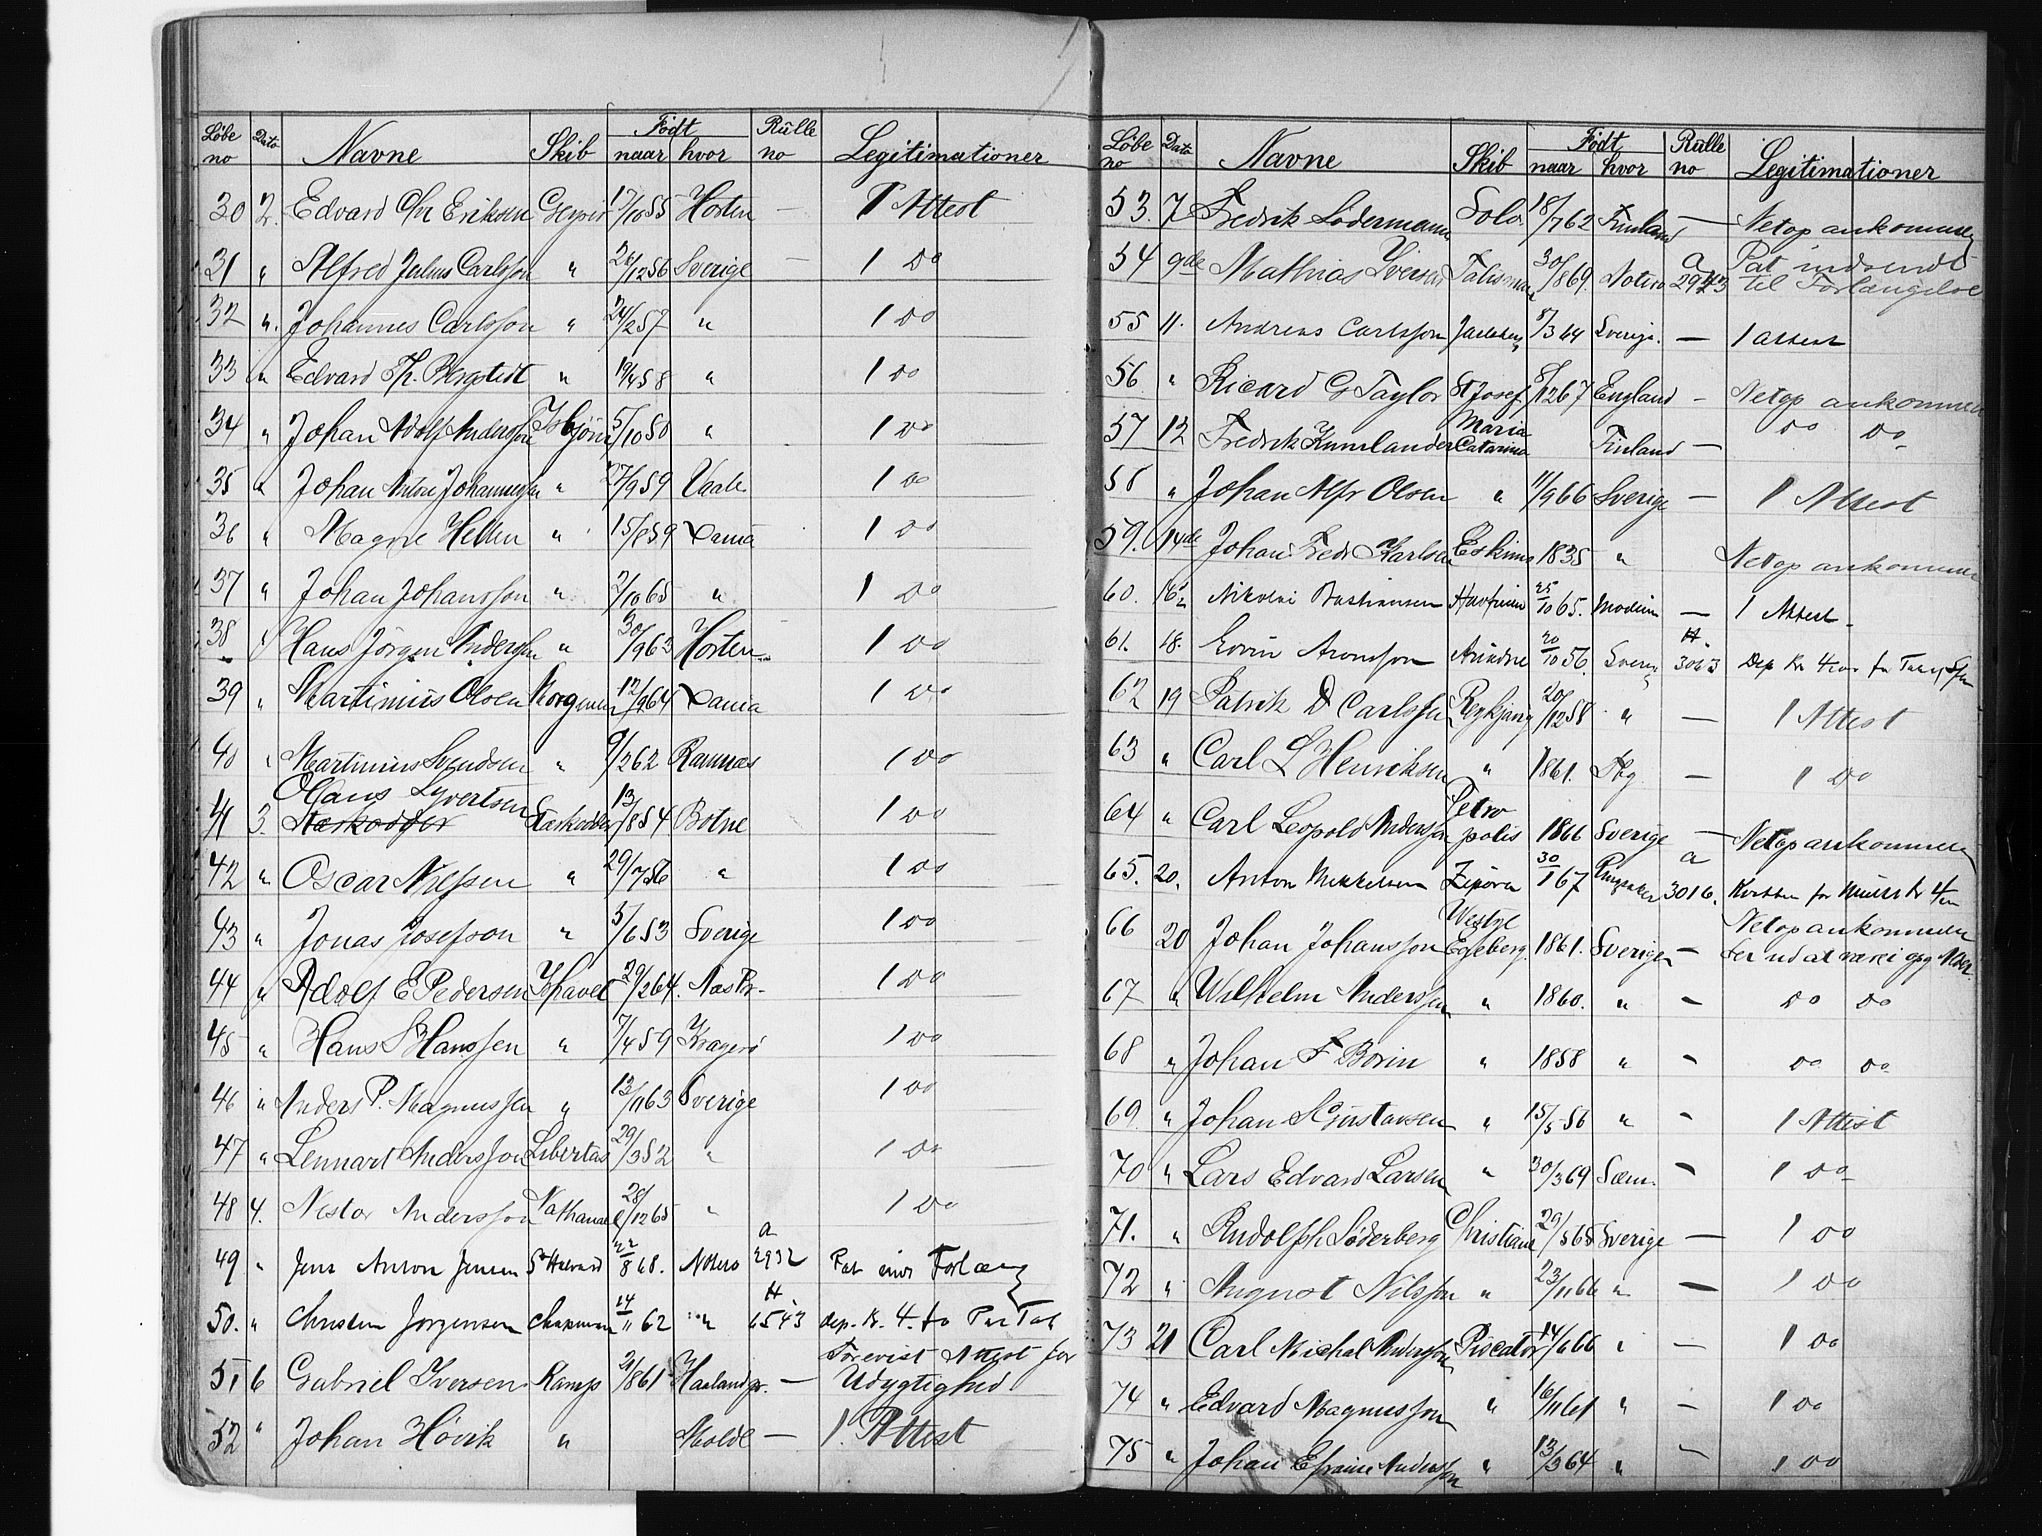 Løbe no Dato Navne Skib Født naar hvor Rulle no Legitimationer
30 2. Edvard Chr Eriksen 17/10 55 Horten — 1 Attest
31 " Alfred Julius Carlsson " 26/12 56 Sverige — 1 do
32 " Johannes Carlsson " 24/2 57 " 1 do
33 " Edvard Th. Bergstedt " 19/4 58 " 1 do
34 " Johan Adolf Andersson Isbjørn 5/10 50 " 1 do
35 " Johan Anton Johannessen " 27/9 59 Vaale 1 do
36 " Magne Hellen " 15/8 59 1 do
37 " Johan Johansson " 2/10 65 " 1 do
38 " Hans Jörgen Andersen " 30/9 63 Horten 1 do
39 " Martinius Olsen Morgenen 12/9 64 1 do
40 " Martinius Svendsen " 9/2 62 Ramnæs 1 do
Hans Syvertsen
41 3. Stærkodder 13/8 54 Botne 1 do
42 " Oscar Nilssen " 29/7 56 " 1 do
43 " Jonas Josefson " 5/6 53 Sverige 1 do
44 " Adolf E Pedersen Ishavet 29/2 64. Næs Pr. 1 do
45 " Hans S Hanssen " 7/4 59 Kragerö 1 do
46 " Anders P. Magnussen " 13/11 63 Sverige 1 do
47 " Lennart Andersson Libertas 29/3 52 " 1 do
48 4. Nestor Andersson Nathanael 28/12 65 " 1 do
49 " Jens Anton Jensen St Halvard 22/8 68. Nøtterø a 2932 Pat inds Forlæng
50. " Christen Jørgensen Chapman 14/11 62 " H 6543 dep. Kr. 4. fo Pat Tab
51 6 Gabriel Iversen Kamp 21/8 61 Haaland pr. — Forevist Attest for Udygtighed
52 " Johan Hövik " Molde — 1. Attest
Løbe no Dato Navne Skib Født naar hvor Rulle no Legitimationer
53. 7 Fredrik Lodermann Solo. 18/7 62 Finland — Netop ankommen
54 9de Mathias Iversen Talisman 30/8 69. Notero a 2943 Pat indsendt til Forlængelse
55 11. Andreas Carlsson Jarlsberg 5/3 64 Sverige. — 1 attest
56 " Ricard G Taylor St Josef 8/12 67 England — Netop ankommen
57 12 Fredrik Kumlander Maria Catarina Finland — do do
58 " Johan Alfr Olsen " 11/9 66 Sverige — 1 Attest
59. 14de Johan Fredr Karlsen Eskimo 1835 " Netop ankommen
60. 16d Nikolai Bastiansen Havfruen 25/10 65. Modum — 1 Attest
61. 18. Aronsson Ariadne 20/10 56. Sverig H. 3063 Dep Kr 4
62 19 Patrik D Carlsson 20/12 58 " — 1 Attest
63 " Carl L Henriksen " 1861. Tbg — 1 do
64 " Carl Leopold Andersson Petropolis 1866 Sverige — Netop ankommen
65. 20. Anton Mikkelsen 30/1 67 Ringsaker a 3016.
66 20 Johan Johansson Westye Egeberg. 1861. Sverige — Netop ankommen
67 " Wilhelm Andersson " 1860. " — do do
68 " Johan F Borin " 1858 " — do do
69. " Johan S Gustavsen " 15/5 56 " — 1 Attest
70 " Lars Edvard Larsen " 30/3 69 Sæm. — 1 do
71. " Rudolph Søderberg Christiane 29/5 68 Sverige — 1 do
72 " August Nilsson " 23/11 66 " — 1 do
73 21 Carl Michal Andersson Piscator 14/6 66 " — 1 do
74 " Edvard Magnusson " 16/11 61 " — 1 do
75 " Johan Efraim Andersson " 13/3 64 " — 1 do